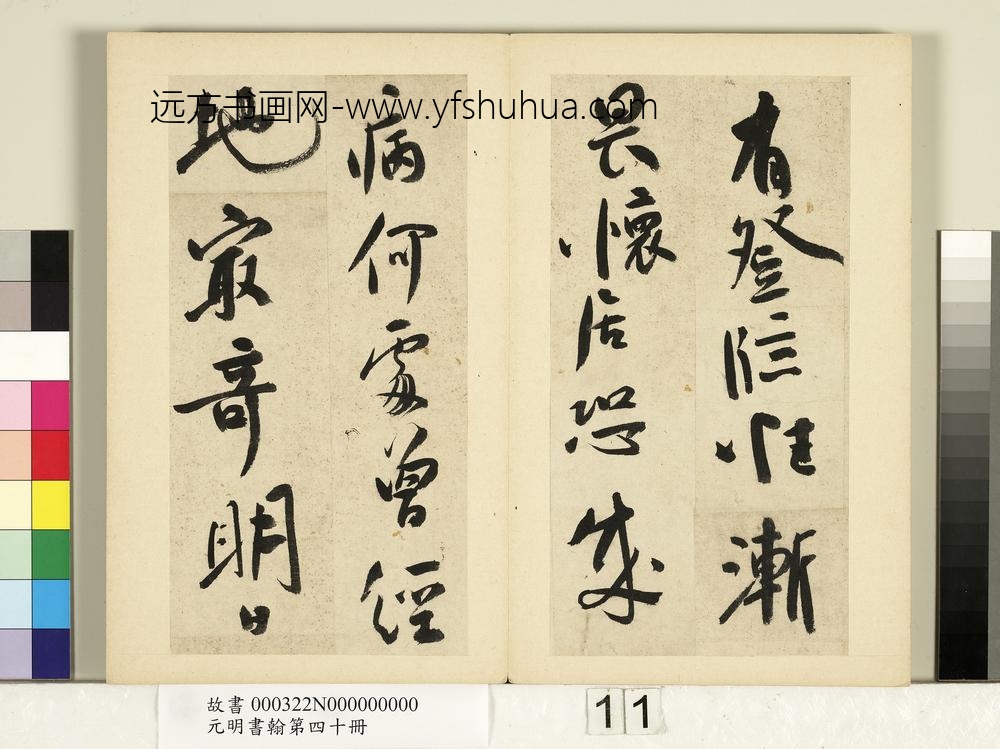 有登臨惟漸
畏懷居恐成
病何處曾經
地最奇明日
远方书画网-www.yfshuhua.com
故書 000322N000000000
元明書翰第四十冊
11